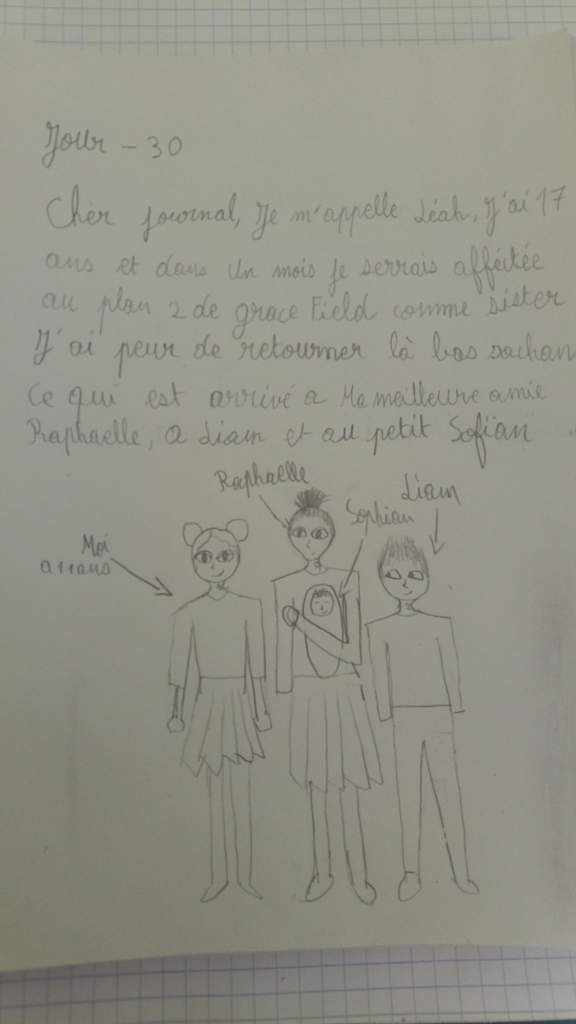 Jour - 30
Cher journal, Je m'appelle Léah, J'ai 17
ans et dans un mois je serrais affectée
au plan 2 de grace Field comme sister
J'ai peur de retourner là bas sachan
ce qui est arrivé a Ma meilleure amie
Raphaelle, a Liam et au petit Sofian
Raphaelle
Liam
Sophian
Moi
a 11 ans